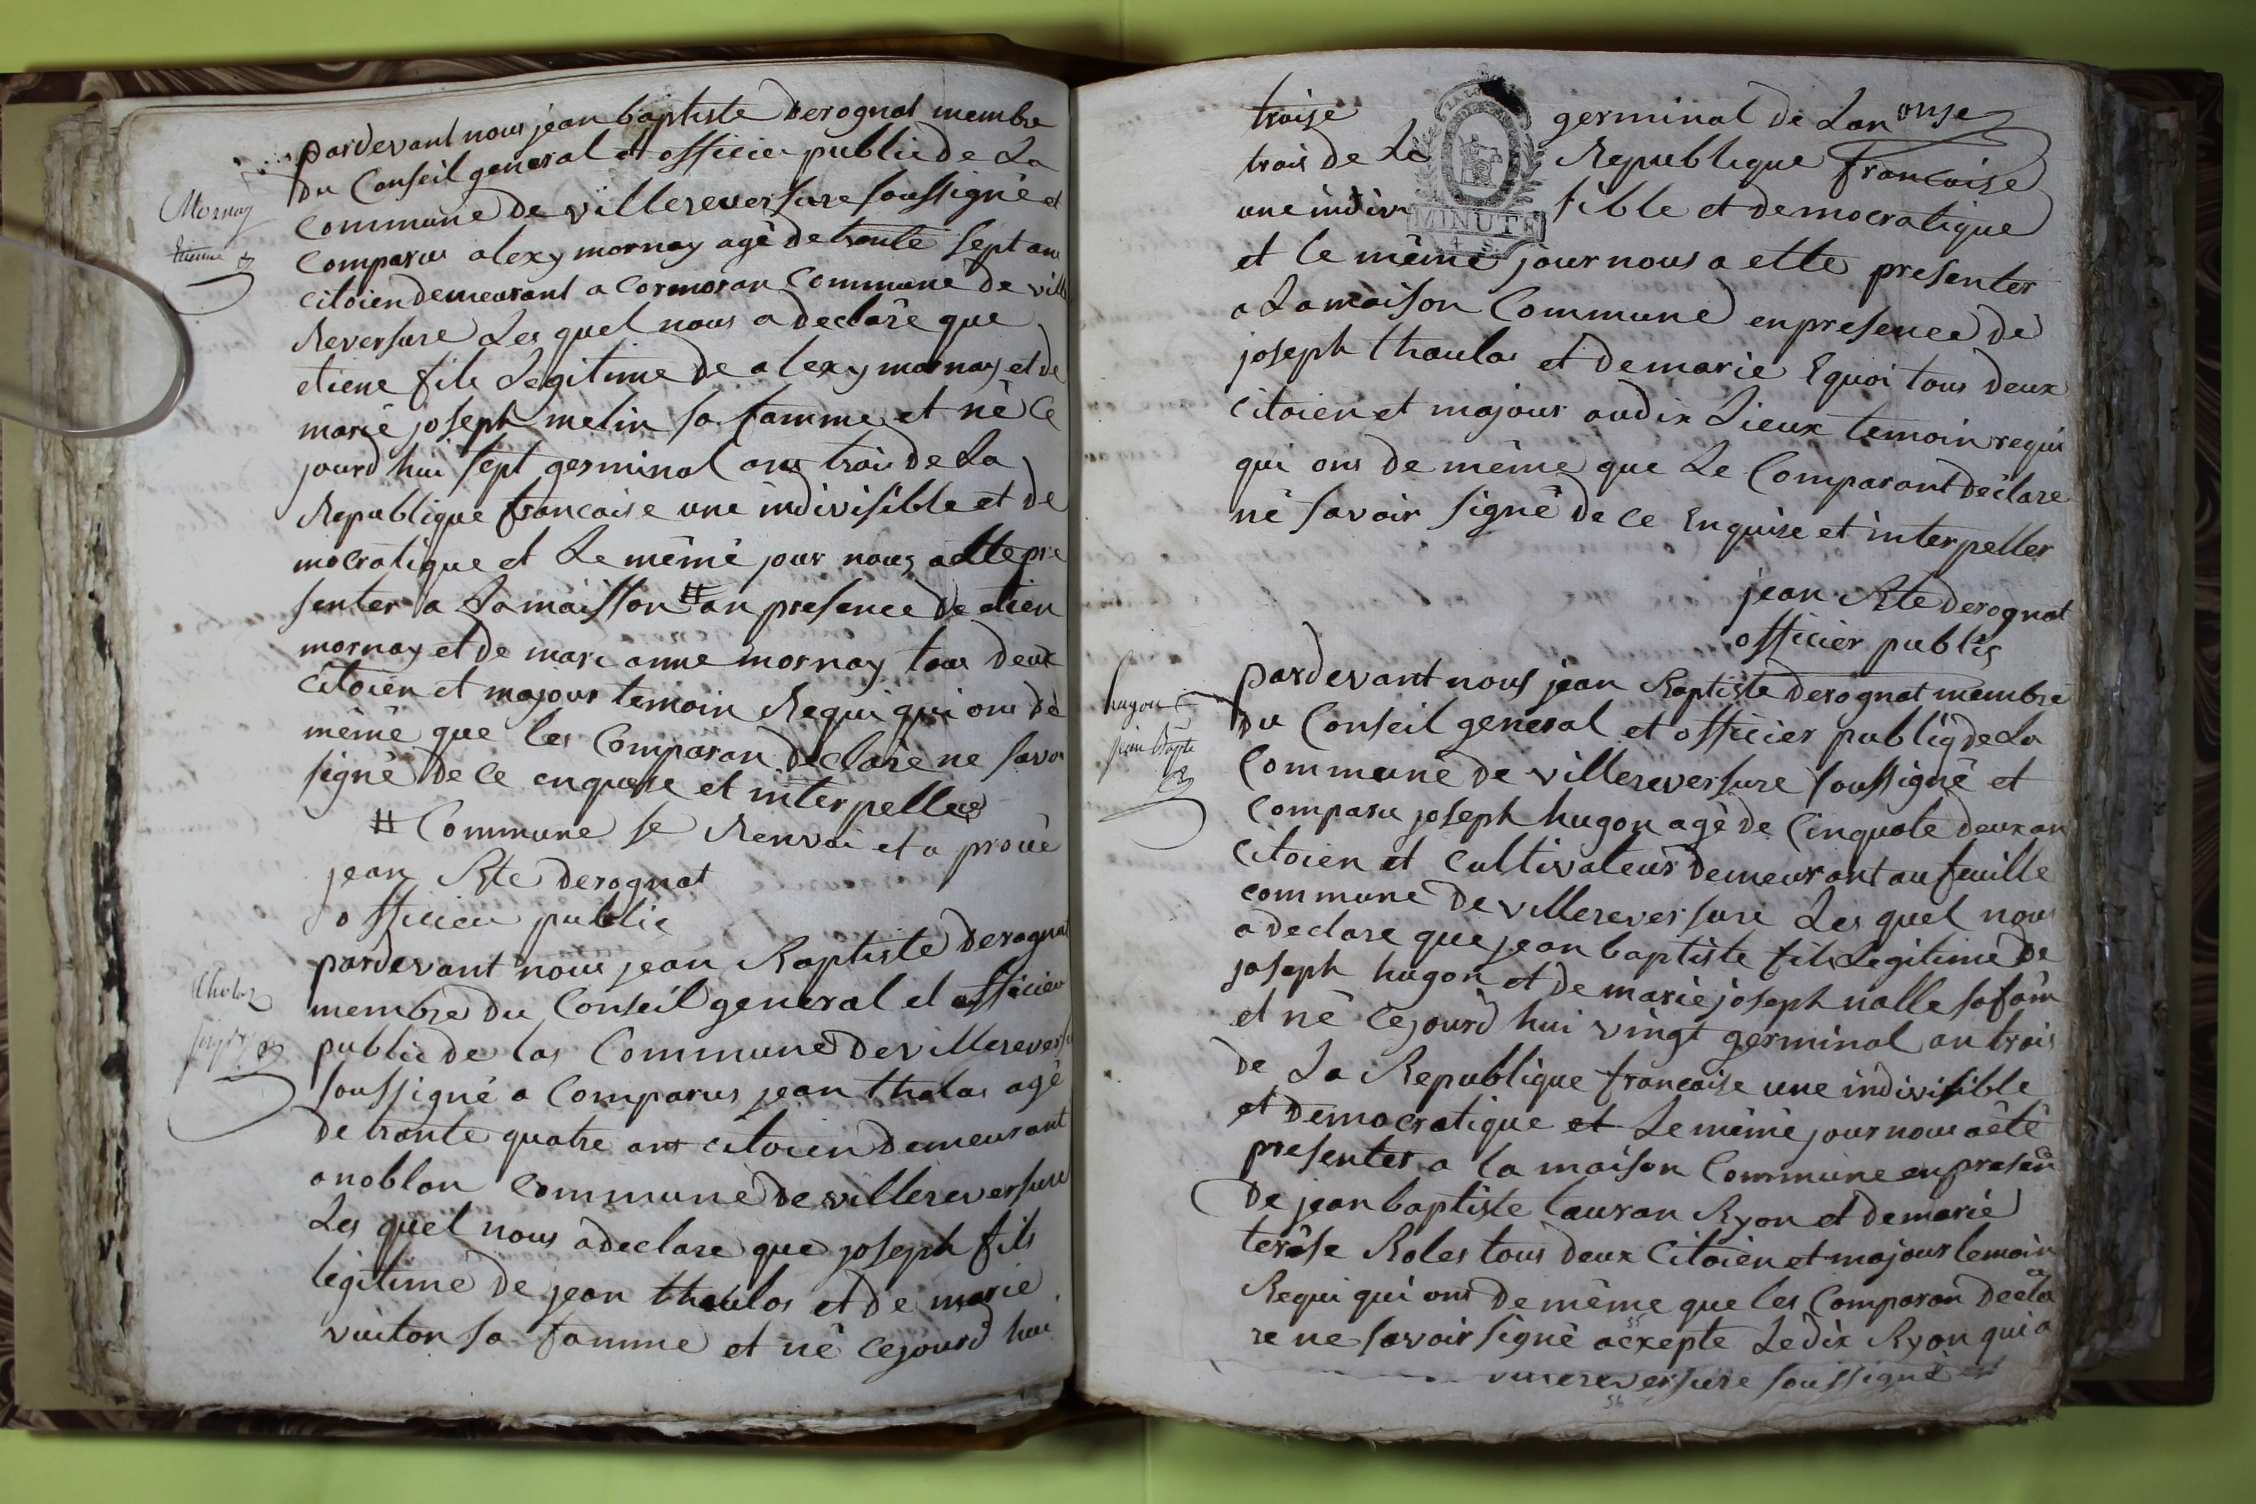 pardevant nous jean baptiste Derognat membre
du Conseil general et officier public de La
Commune de villereversure soussigné et
Mornay
Comparus alexy mornay agè de trante sept ans
Etienne
citoien demeurant a Cormoran Commune de ville
Reversure Les quel nous a declare que
etiene fils Legitime de alexy mornay et de
marie joseph melin sa famme et nè Ce
jourd hui sept germinal ans trois de La
Republique francaise une indivisible et de
mocratique et Le même jour nous a ette pre
senter a La maisson # an presence de etien
mornay et de mari anne mornay tous deux
Citoien et majour temoin Requi qui ons de
même que les Comparan declare ne savoi
signè de ce enquise et interpeller
# Commune se Renvoi et a prouè
jean Bte derognat
officier public
pardevant nous jean Baptiste derognat
membre du Conseil general et officier
public de las Commune de villerevers
soussigné a Comparus jean thalas agè
de trante quatre ans citoien demeurant
a noblan Commune de villereversure
Les quel nous a declare que joseph fils
lègitime de jean thaulas et de marie
vuiton sa famme et nè cejourd hui
traise germinal de Lan onse
trois de La Republique francaise
une indivi sible et democratique
MINUTE
4 S.
et le même jour nous a ette presenter
a La maison Commune en presence de
joseph thaulas et de marie Equoi tous deux
citoien et majour audix Lieux temoin requi
qui ons de même que Le Comparant declare
nè savoir signè de ce Enquise et interpeller
jean Bte derognat
officier public
hugon
jean Bapte
pardevant nous jean Baptiste derognat membre
du Conseil general et officier publiq de La
Commune de villereversure soussignè et
Comparu joseph hugon agè de Cinquate deux an
Citoien et Cultivateur demeurant au feuille
commune de villereversure Les quel nous
a declare que jean baptiste fils Legitime de
joseph hugon et de marie joseph nalle sa fam
et nè cejourd hui vingt germinal an trois
de La Republique francaise une indivisible
et democratique et Le même jour nous a êtê
presenter a la maison Commune en presen
De jean baptiste tauran Ryon et de marie
terese Roles tous deux Citoien et majour temoin
Requi qui ons de même que les Comparan decla
re ne savoir signè acxepte Ledix Ryon qui a
villereversure soussigné et